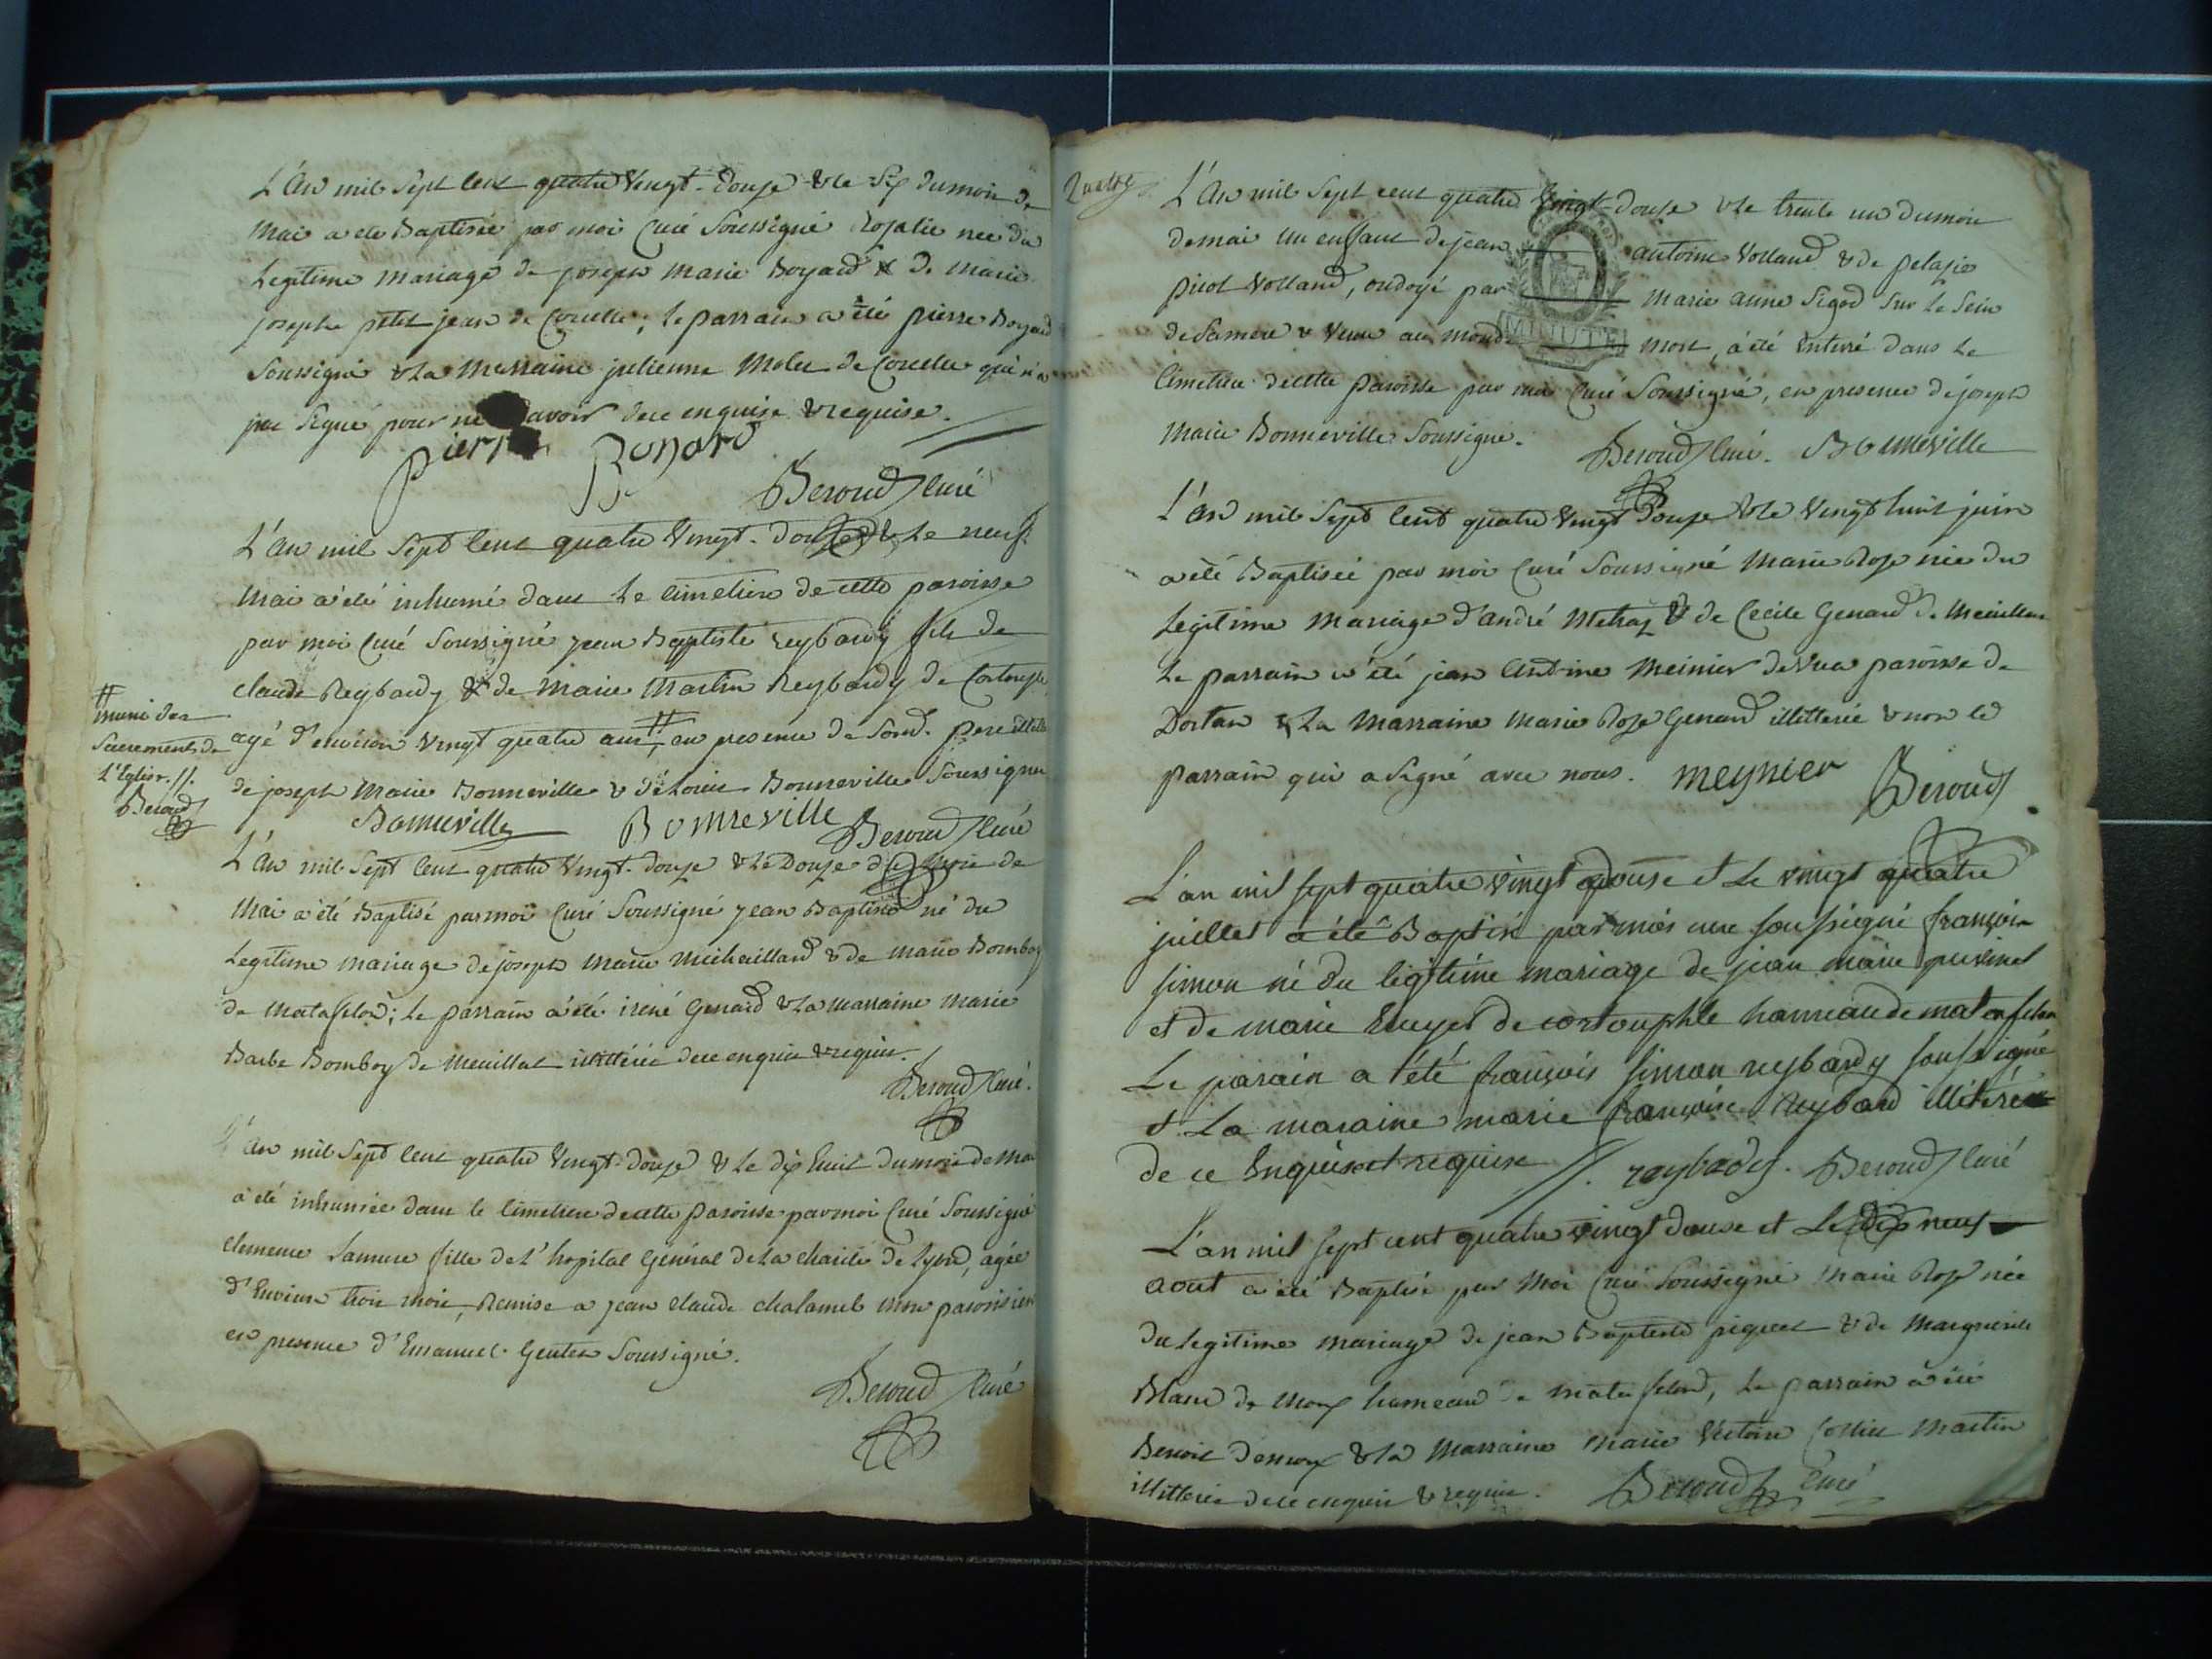 L'an mil Sept cent quatre Vingt-douse & le Six du mois de
Mai a été Baptisée par moi Curé Soussigné Rosalie née du
Legitime mariage de joseph marie Boyard & de marie
josephe petit jean de Corcelle; le parrain a été pierre Boyard
Soussigné & la Marraine julienne Molet de Corcelle qui n'a
pas Signé pour ne avoir dece enquise & requise.
pierre Boyard
Beroud Curé
L'an mil Sept Cent quatre Vingt-douse & Le neuf
Mai a été inhumé dans Le cimetiere de cette paroisse
par moi Curé Soussigné jean Baptiste reybardy fils de
claude Reybardy & de Marie Martin Reybardy de
# muni des
Sacrements de
L'Eglise.//.
Beroud
agé d'environ Vingt quatre ans #, en presence de Sond. pere
de joseph Marie Bonneville & de Louis Bonneville Soussignés
Bonneville Bonneville Beroud Curé
L'an mil Sept Cent quatre Vingt-douse & Le Douse du mois de
Mai a été Baptisé par moi Curé Soussigné jean Baptiste né du
Legitime mariage de joseph marie michaillard & de marie Bomboy
de matafelon; Le parrain a été irené Genard & La marraine marie
Barbe Bomboy de Meuillat illittérée dece enquise & requise.
Beroud Curé.
L'an mil Sept Cent quatre Vingt-douse & Le dix huit du mois de Mai
a été inhumée dans le Cimetiere de cette paroisse par moi Curé Soussigné
clemence Lamure fille de L'hopital General de La charité de Lyon, agée
d'Environ trois mois, Remise a jean claude chalamel mon paroissien
en presence d'Emanuel Genter Soussigné.
Beroud Curé
L'an mil Sept cent quatre Vingt-douse & le trente un du mois
de mai un enfant de jean antoine Volland & de pelagie
picot Volland, ondoyé par marie anne Sigod Sur le Sein
de Samere & venu au monde mort, a été Enterré dans Le
MINUTE
Cimetiere de cette paroisse par moi Curé Soussigné, en presence de joseph
Marie Bonneville Soussigné. Beroud Curé. Bonneville
L'an mil Sept Cent quatre Vingt Douse & le Vingt huit juin
a été Baptisée par moi Curé Soussigné Marie Rose née du
Legitime Mariage d'andré Metraz & de Cecile Genard de Meuillat
Le parrain a été jean Antoine Meinier de Vua paroisse de
Dortan & La Marraine Marie Rose Genard illitterée & non le
parrain qui a Signé avec nous. meynier Beroud
L'an mil sept quatre vingt douse et Le vingt quatre
juillet a été Baptisé par moi curé soussigné françois
simon né du legitime mariage de jean marie
et de marie de cortouphle hameau de matafelon
Le parain a été françois simon reybardy soussigné
et La maraine marie françoise Reybard illitérée
de ce Enquise et requise //. reybardy. Beroud Curé
L'an mil sept cent quatre vingt douse et Le dix neuf
aout a été Baptisé par Moi Curé Soussigné Marie Rose née
du Legitime mariage de jean Baptiste piquet & de Marguerite
Blanc de Mons hameau de matafelon, Le parrain a été
Benoit & la Marraine Marie Victoire Martin
illitterés dece enquis & requis. Beroud Curé